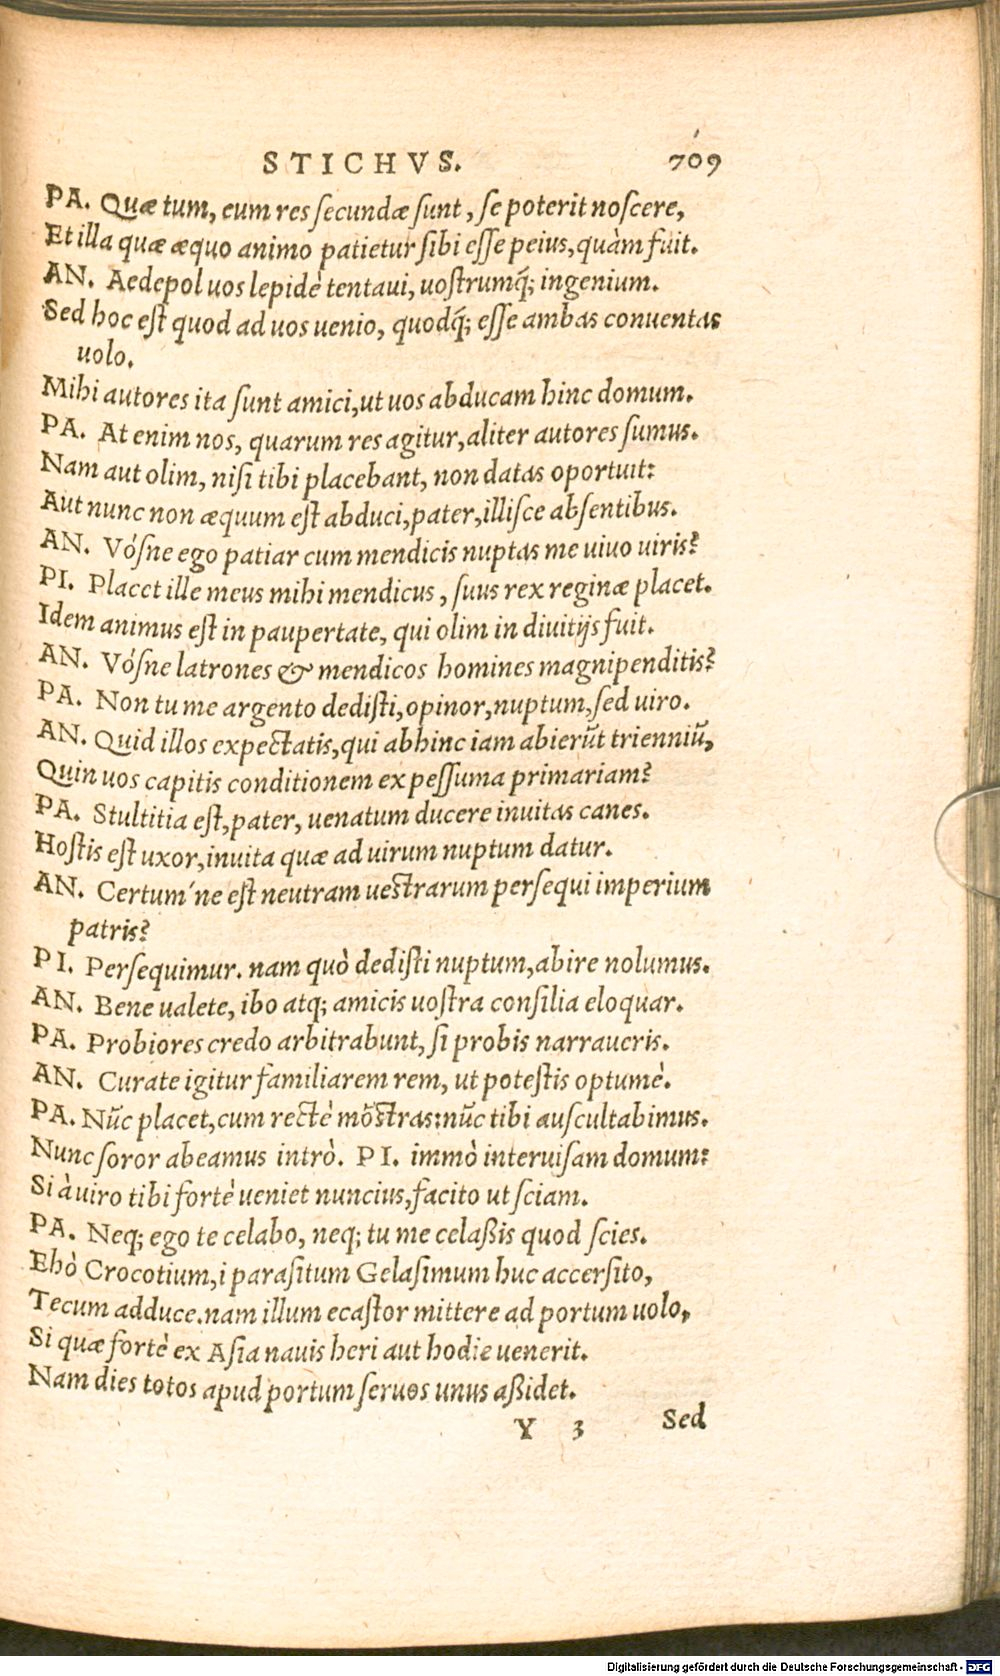 STICHVS. 709
PA. Quæ tum, eum res secundæ sunt, se poterit noscere,
Et illa quæ æquo animo patietur sibi esse peius, quàm fuit.
AN. Aedepol uos lepidè tentaui, uostrumq́; ingenium.
Sed hoc est quod ad uos uenio, quodq́; esse ambas conuentas
uolo.
Mihi autores ita sunt amici, ut uos abducam hinc domum.
PA. At enim nos, quarum res agitur, aliter autores sumus.
Nam aut olim, nisi tibi placebant, non datas oportuit:
Aut nunc non æquum est abduci, pater, illisce absentibus.
AN. Vósne ego patiar cum mendicis nuptas me uiuo uiris?
PI. Placet ille meus mihi mendicus, suus rex reginæ placet.
Idem animus est in paupertate, qui olim in diuitijs fuit.
AN. Vósne latrones & mendicos homines magnipenditis?
PA. Non tu me argento dedisti, opinor, nuptum, sed uiro.
AN. Quid illos expectatis, qui abhinc iam abierũt trienniũ,
Quin uos capitis conditionem ex pessuma primariam?
PA. Stultitia est, pater, uenatum ducere inuitas canes.
Hostis est uxor, inuita quæ ad uirum nuptum datur.
AN. Certum'ne est neutram uestrarum persequi imperium
patris?
PI. Persequimur. nam quò dedisti nuptum, abire nolumus.
AN. Bene ualete, ibo atq; amicis uostra consilia eloquar.
PA. Probiores credo arbitrabunt, si probis narraueris.
AN. Curate igitur familiarem rem, ut potestis optumè.
PA. Nũc placet, cum rectè mõstras: nũc tibi auscultabimus.
Nunc soror abeamus intrò. PI. immò interuisam domum:
Si à uiro tibi fortè ueniet nuncius, facito ut sciam.
PA. Neq; ego te celabo, neq; tu me celaßis quod scies.
Ehò Crocotium, i parasitum Gelasimum huc accersito,
Tecum adduce. nam illum ecastor mittere ad portum uolo,
Si quæ fortè ex Asia nauis heri aut hodie uenerit.
Nam dies totos apud portum seruos unus aßidet.
Y 3 Sed
Digitalisierung gefördert durch die Deutsche Forschungsgemeinschaft - DFG